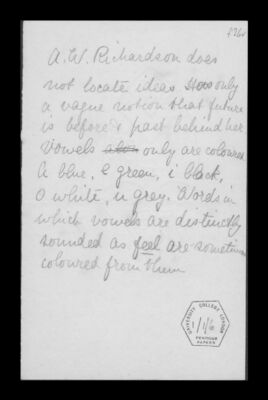 A.W. Richardson does
not locate ideas. Has only
a vague notion that future
is before & past behind her
Vowels alon only are coloured
A blue, e green, i black,
O white, u grey. Words in
which vowels are distinctly
sounded as feel are sometimes
coloured from them
UNIVERSITY COLLEGE LONDON
PEARSON
PAPERS